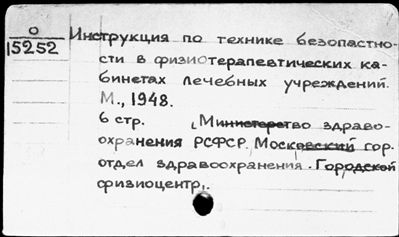 О
15252
Инструкция по технике безопастно-
сти в физиотерапевтических ка-
бинетах лечебных учреждений.
М., 1948.
6 стр. Министерство здраво-
охранения РСФСР. Московский гор.
отдел здравоохранения. Городской
физиоцентр.